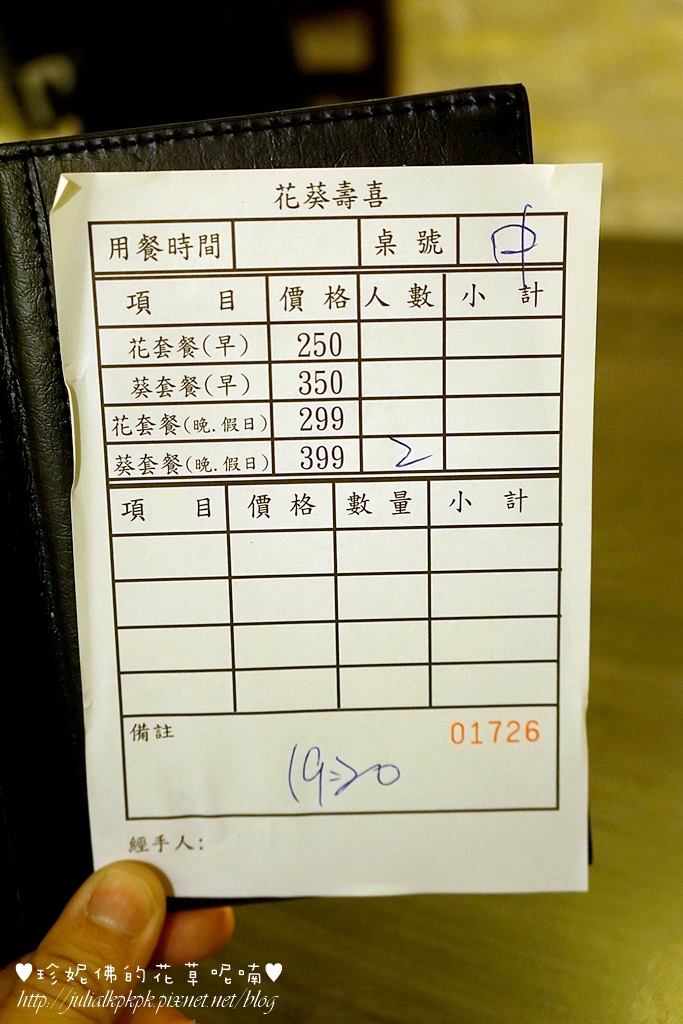 花葵壽喜
用餐時間 桌號 中
項 目 價格 人數 小 計
花套餐(早) 250
葵套餐(早) 350
花套餐(晚.假日) 299
葵套餐(晚.假日) 399 2
項 目 價格 數量 小 計
備註 01726
19:20
經手人:
♥珍妮佛的花草呢喃♥
http://julialkpkpk.pixnet.net/blog